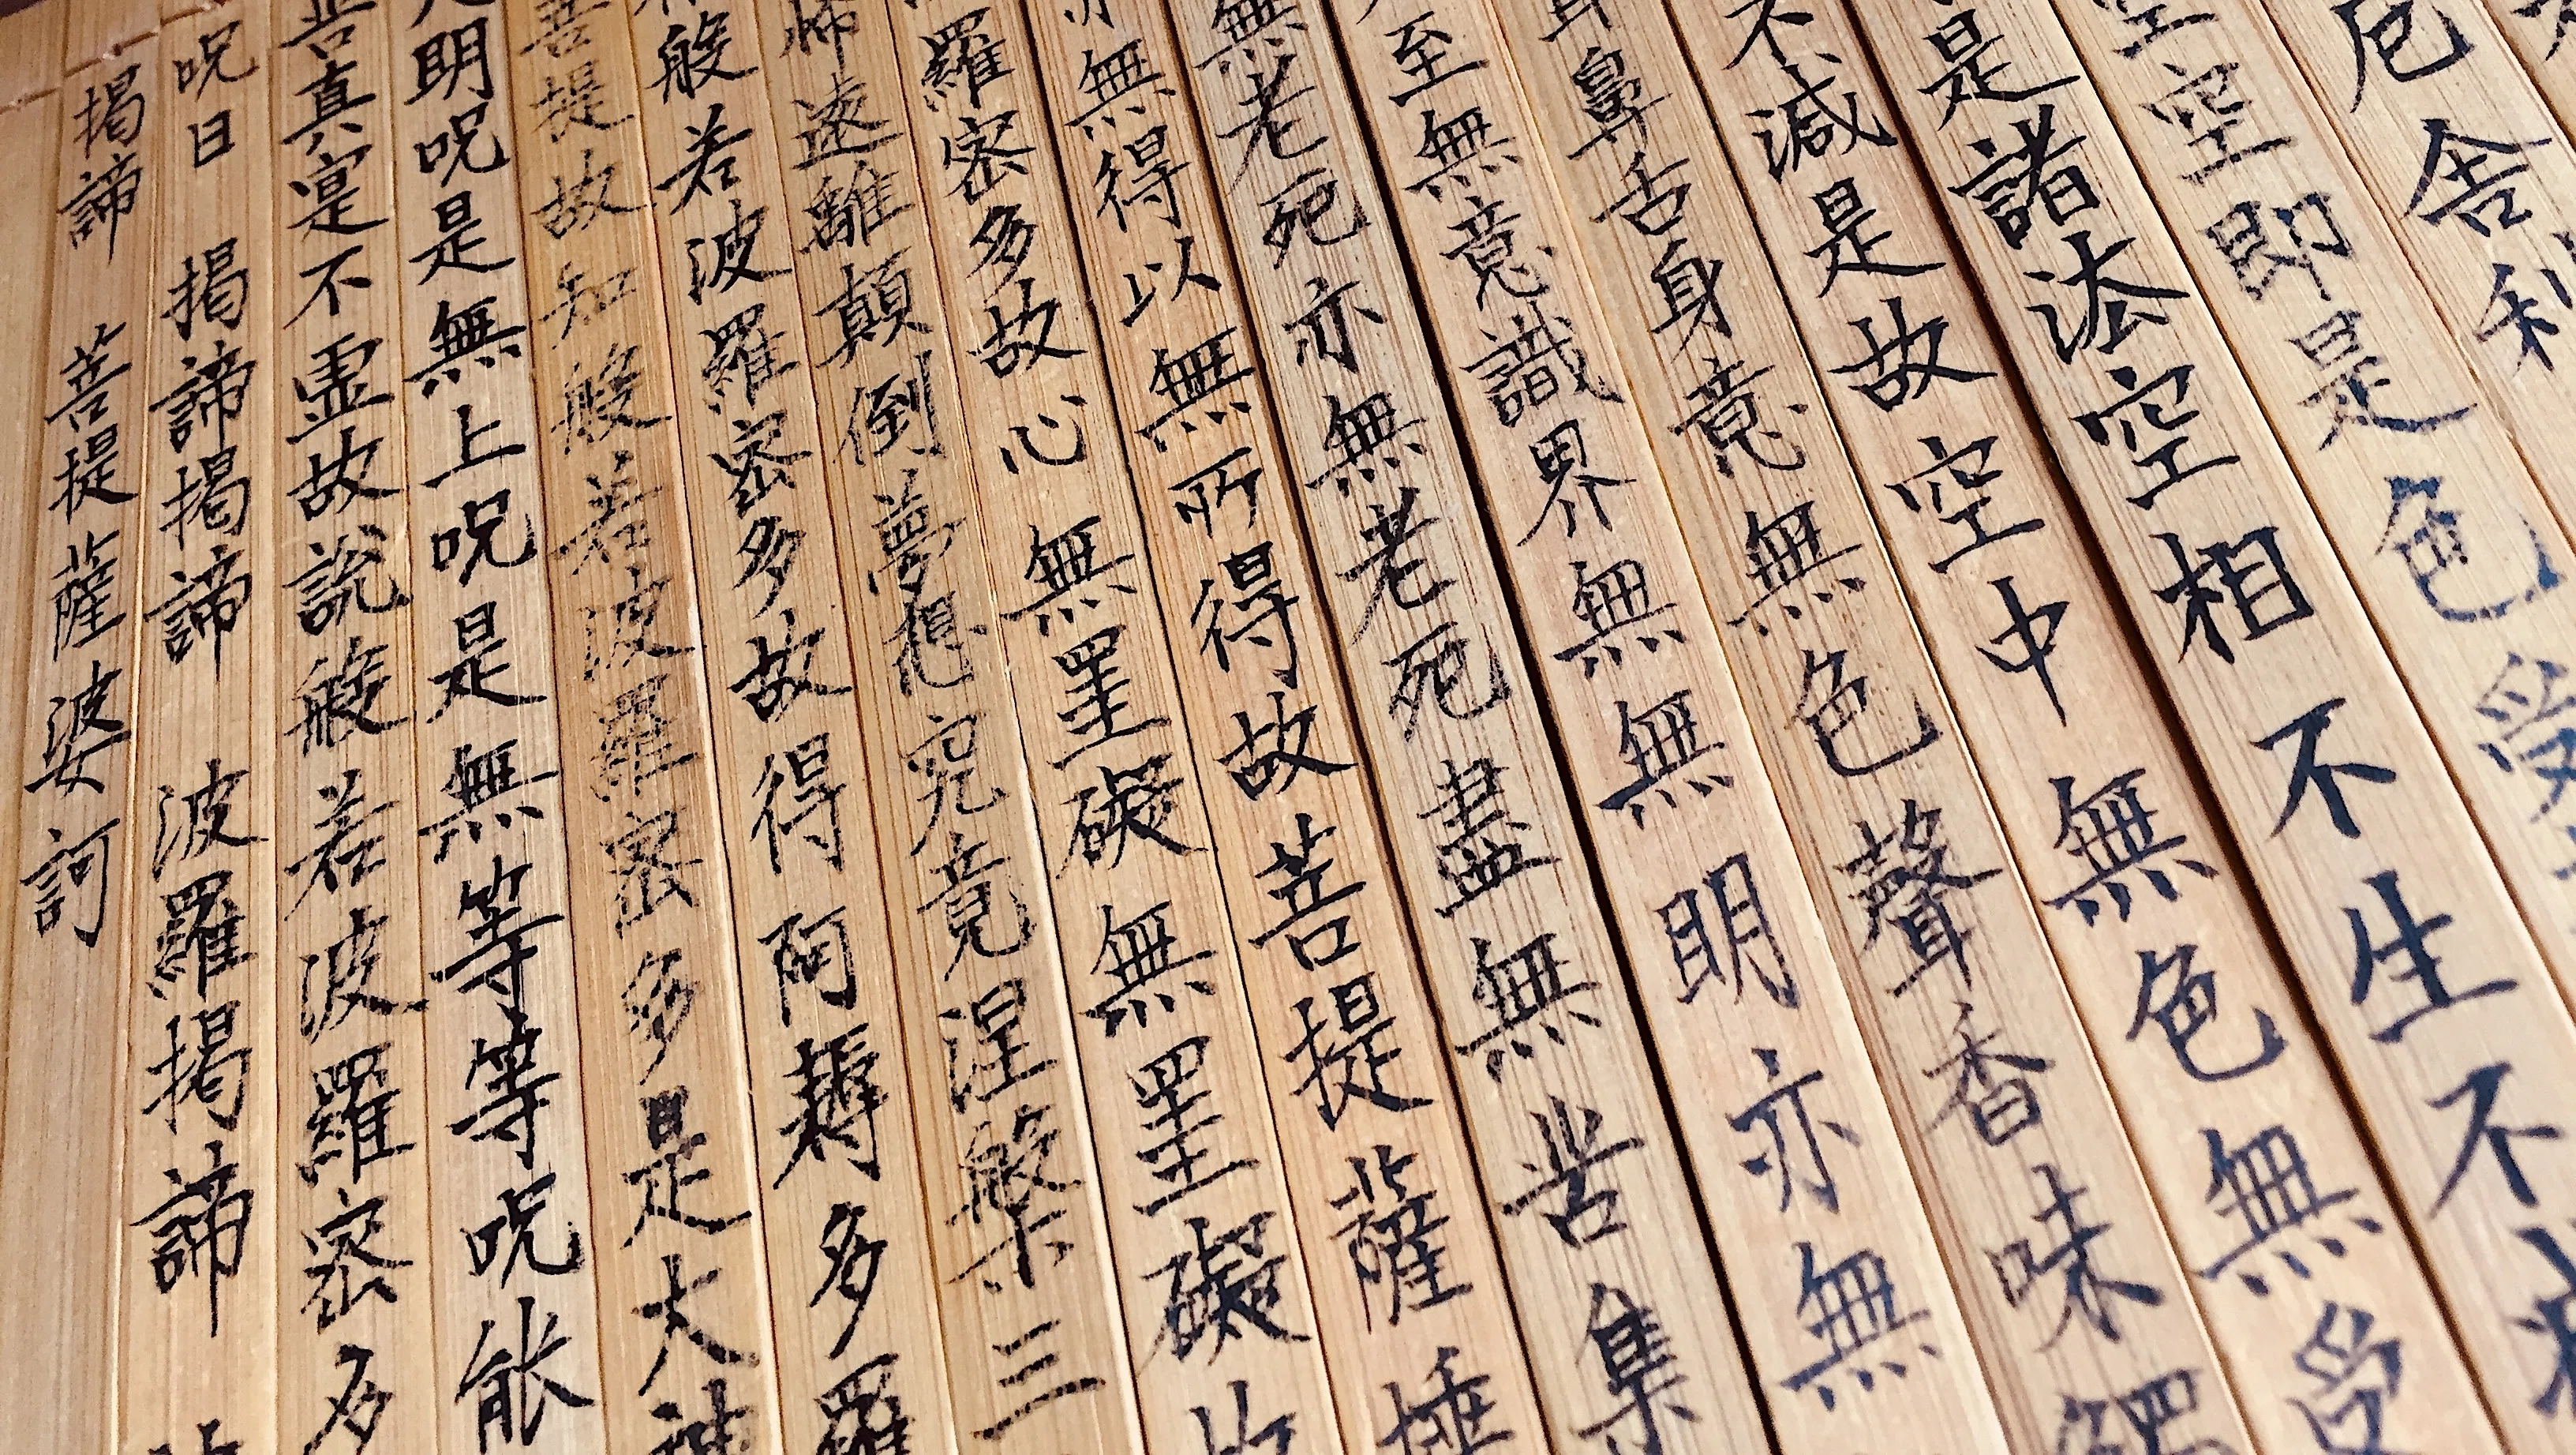 厄舍利
空空即是色受
是諸法空相不生不
不減是故空中無色無受
鼻舌身意無色聲香味觸
至無意識界無無明亦無
無老死亦無老死盡無苦集
亦無得以無所得故菩提薩埵
羅密多故心無罣礙無罣礙故
怖遠離顛倒夢想究竟涅槃三
般若波羅密多故得阿耨多羅
菩提故知般若波羅密多是大神
明呪是無上呪是無等等呪能
苦真寔不虛故說般若波羅密多
呪曰 揭諦揭諦 波羅揭諦
揭諦 菩提薩婆訶